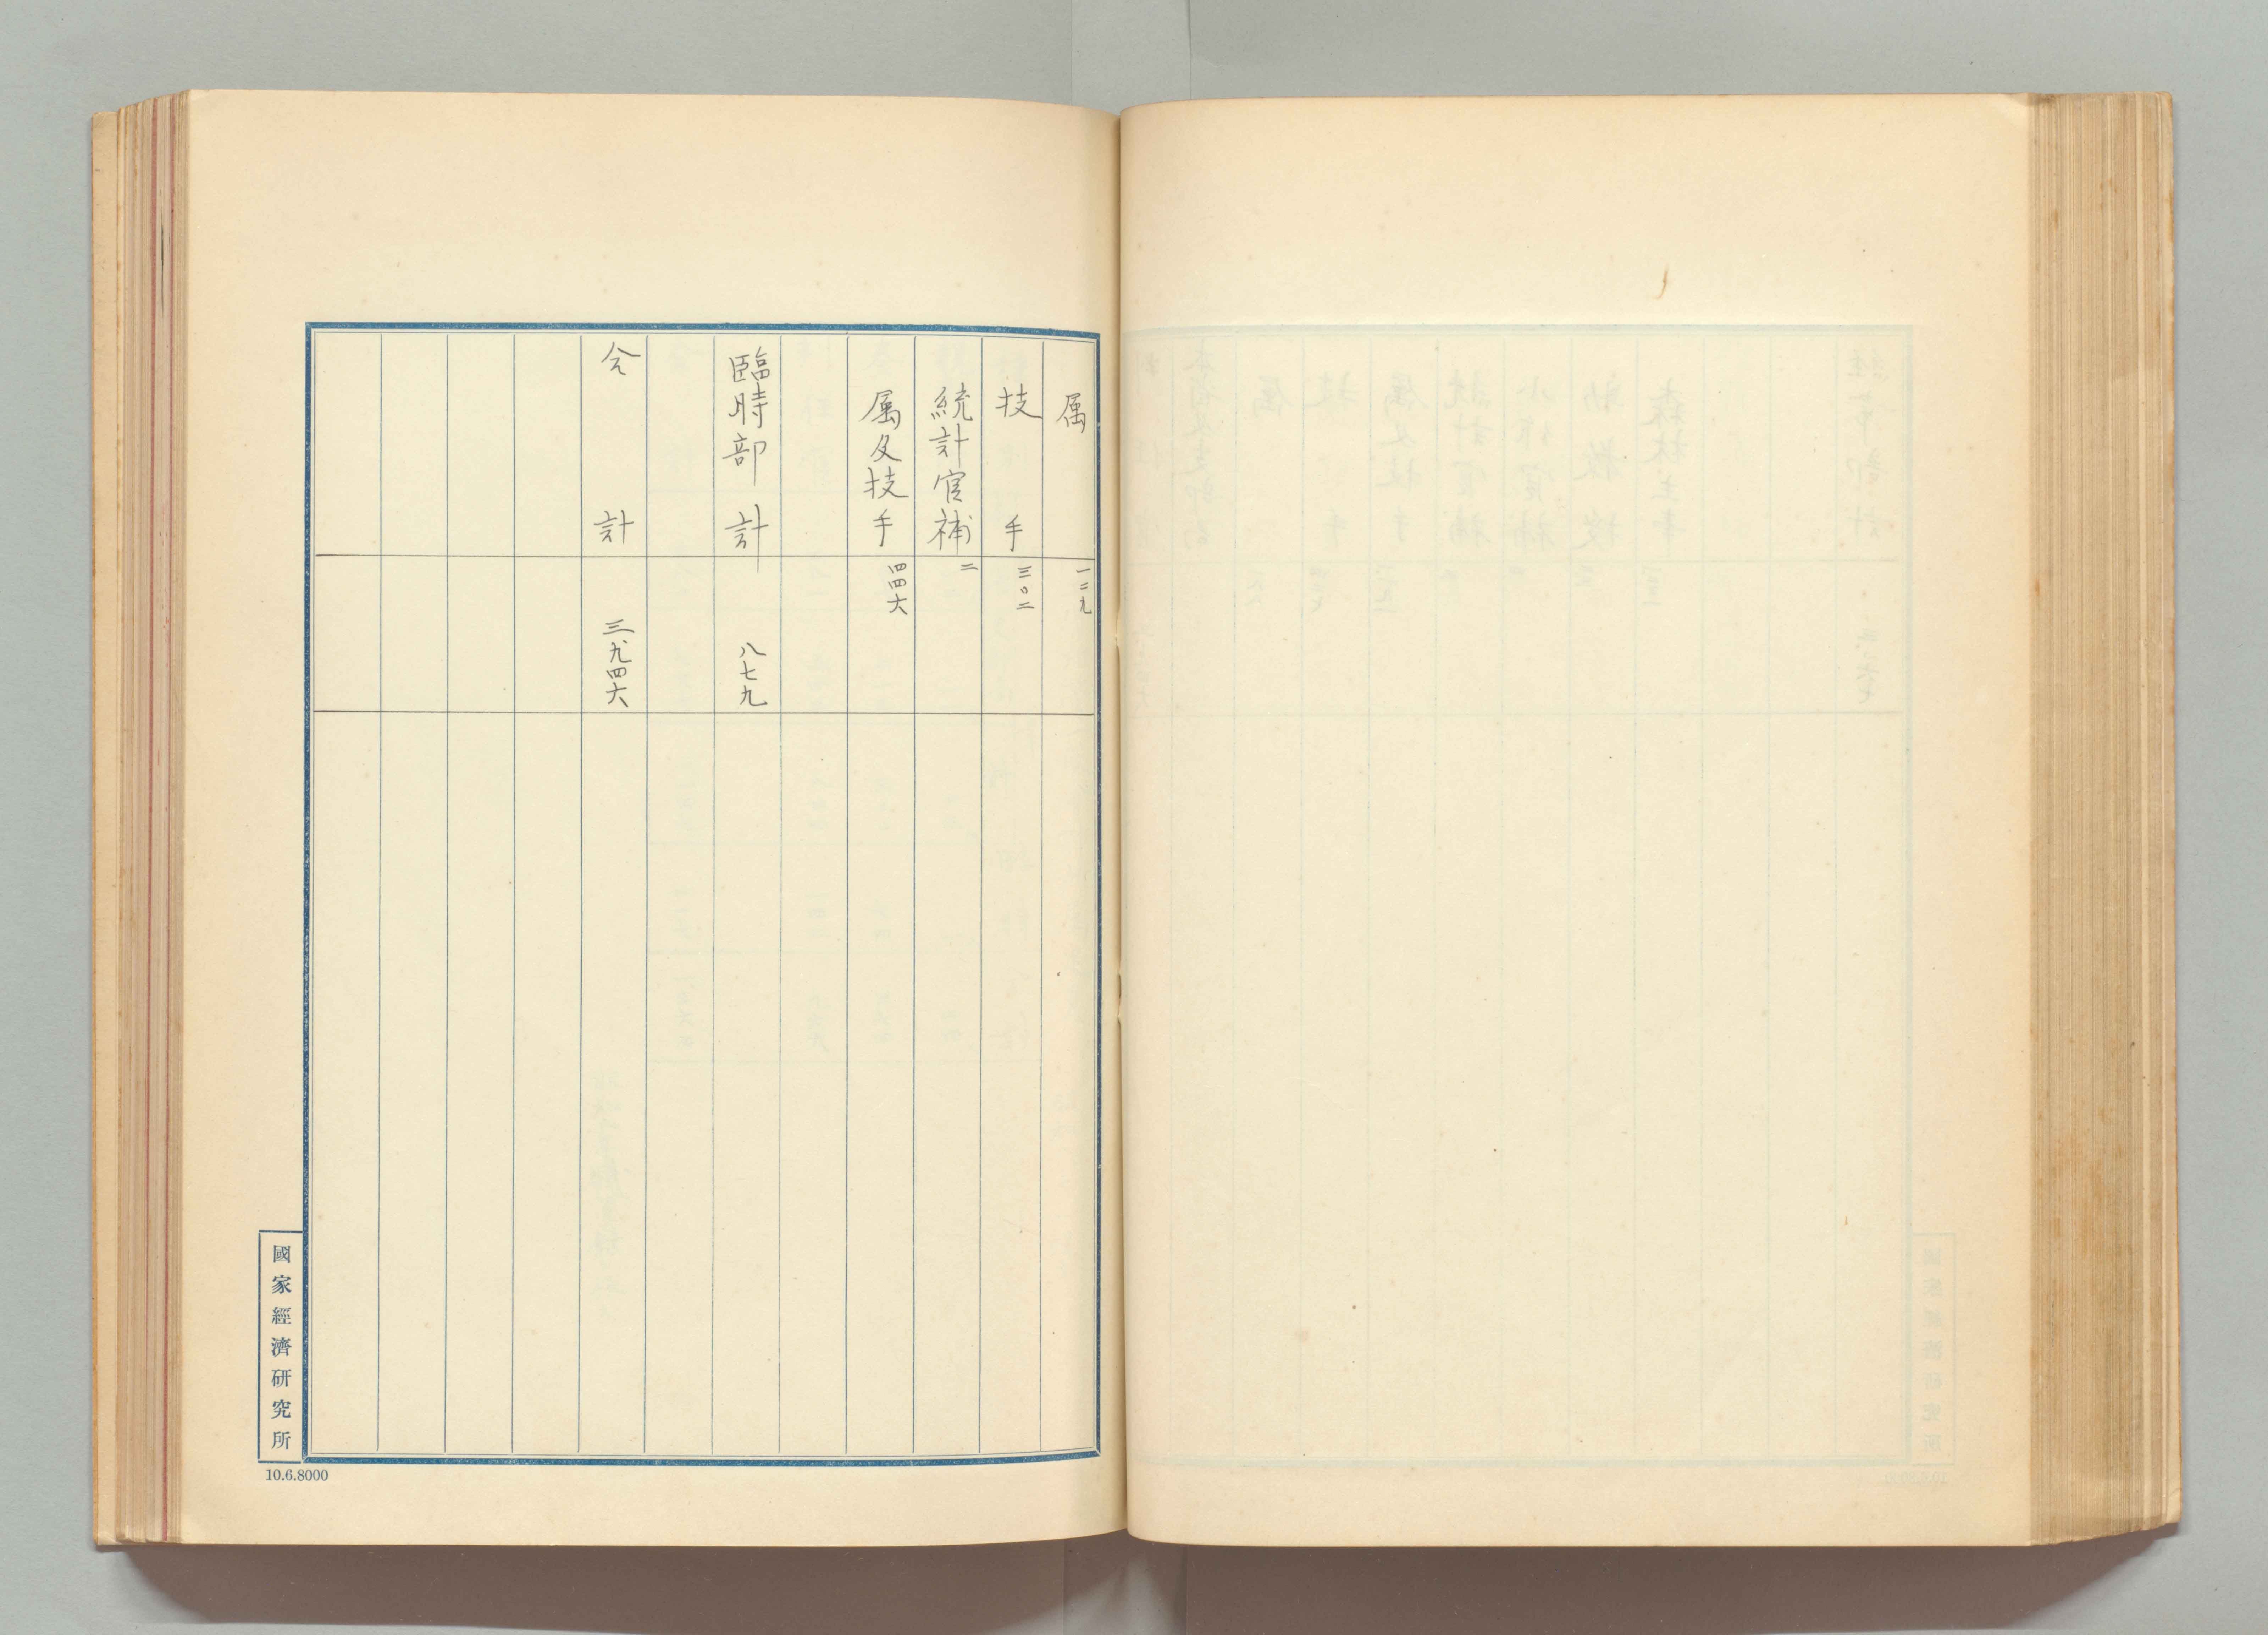 属 一二九
技手 三〇二
統計官補 二
属及技手 四四六
臨時部計 八七九
仝計 三、九四六
國家經濟研究所
10.6.8000